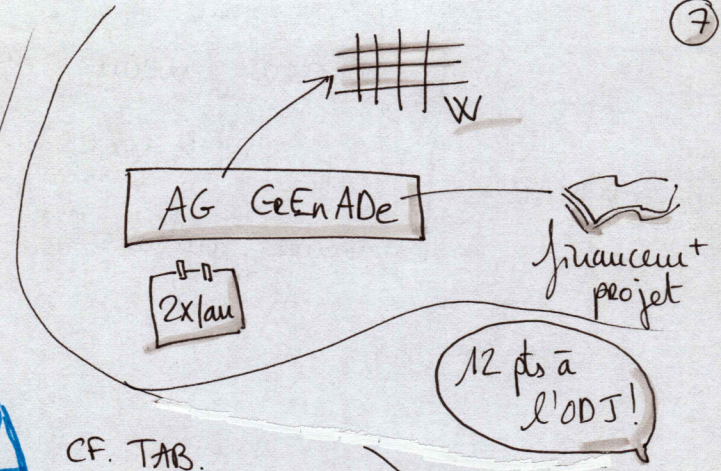 7
W
AG GREnADe
financemt
projet
2x/an
12 pts à
l'ODJ!
CF. TAB.